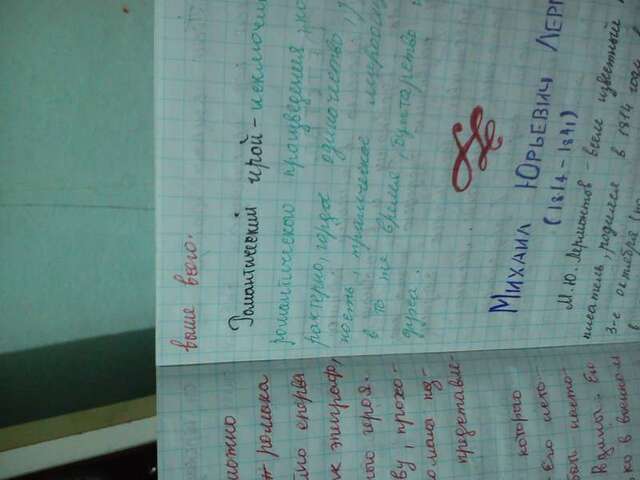 можно
романа
эпиграф,
ного героя.
ву, прохо-
романа
представле-
которого
Его исто-
быть насто-
Родины. Ею
ко в военном
выше всего.
Романтический ирой - исключи
романтического произведения, ко
рактерно, гордое одиночество,
ность, трагическое мироощ
в то же время, бунтарство
духа.
МИХАИЛ ЮРЬЕВИЧ ЛЕР
(1814 - 1841)
М.Ю. Лермонтов - всем известный
писатель, родился в 1814 году
3-е октября